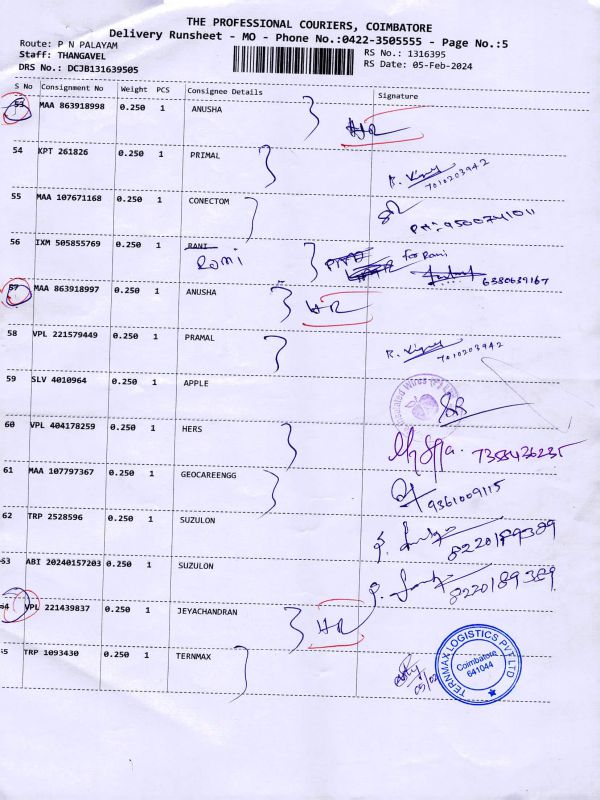 THE PROFESSIONAL COURIERS, COIMBATORE
Delivery Runsheet - MO - Phone No.:0422-3505555 - Page No.:5
Route: P N PALAYAM
RS No.: 1316395
Staff: THANGAVEL
RS Date: 05-Feb-2024
DRS No.: DCJB131639505
S No Consignment No Weight PCS Consignee Details Signature
53 MAA 863918998 0.250 1 ANUSHA
54 KPT 261826 0.250 1 PRIMAL 7010203942
55 MAA 107671168 0.250 1 CONECTOM PH:9500741011
56 IXM 505855769 0.250 1 RANI Romi for Rani 6380639167
57 MAA 863918997 0.250 1 ANUSHA
58 VPL 221579449 0.250 1 PRAMAL 7010203942
59 SLV 4010964 0.250 1 APPLE
60 VPL 404178259 0.250 1 HERS 7358436235
61 MAA 107797367 0.250 1 GEOCAREENGG 9361009115
62 TRP 2528596 0.250 1 SUZULON 8220189389
63 ABI 20240157203 0.250 1 SUZULON 8220189389
64 VPL 221439837 0.250 1 JEYACHANDRAN
65 TRP 1093430 0.250 1 TERNMAX 05/02
TERNMAX LOGISTICS PVT LTD
Coimbatore
641044